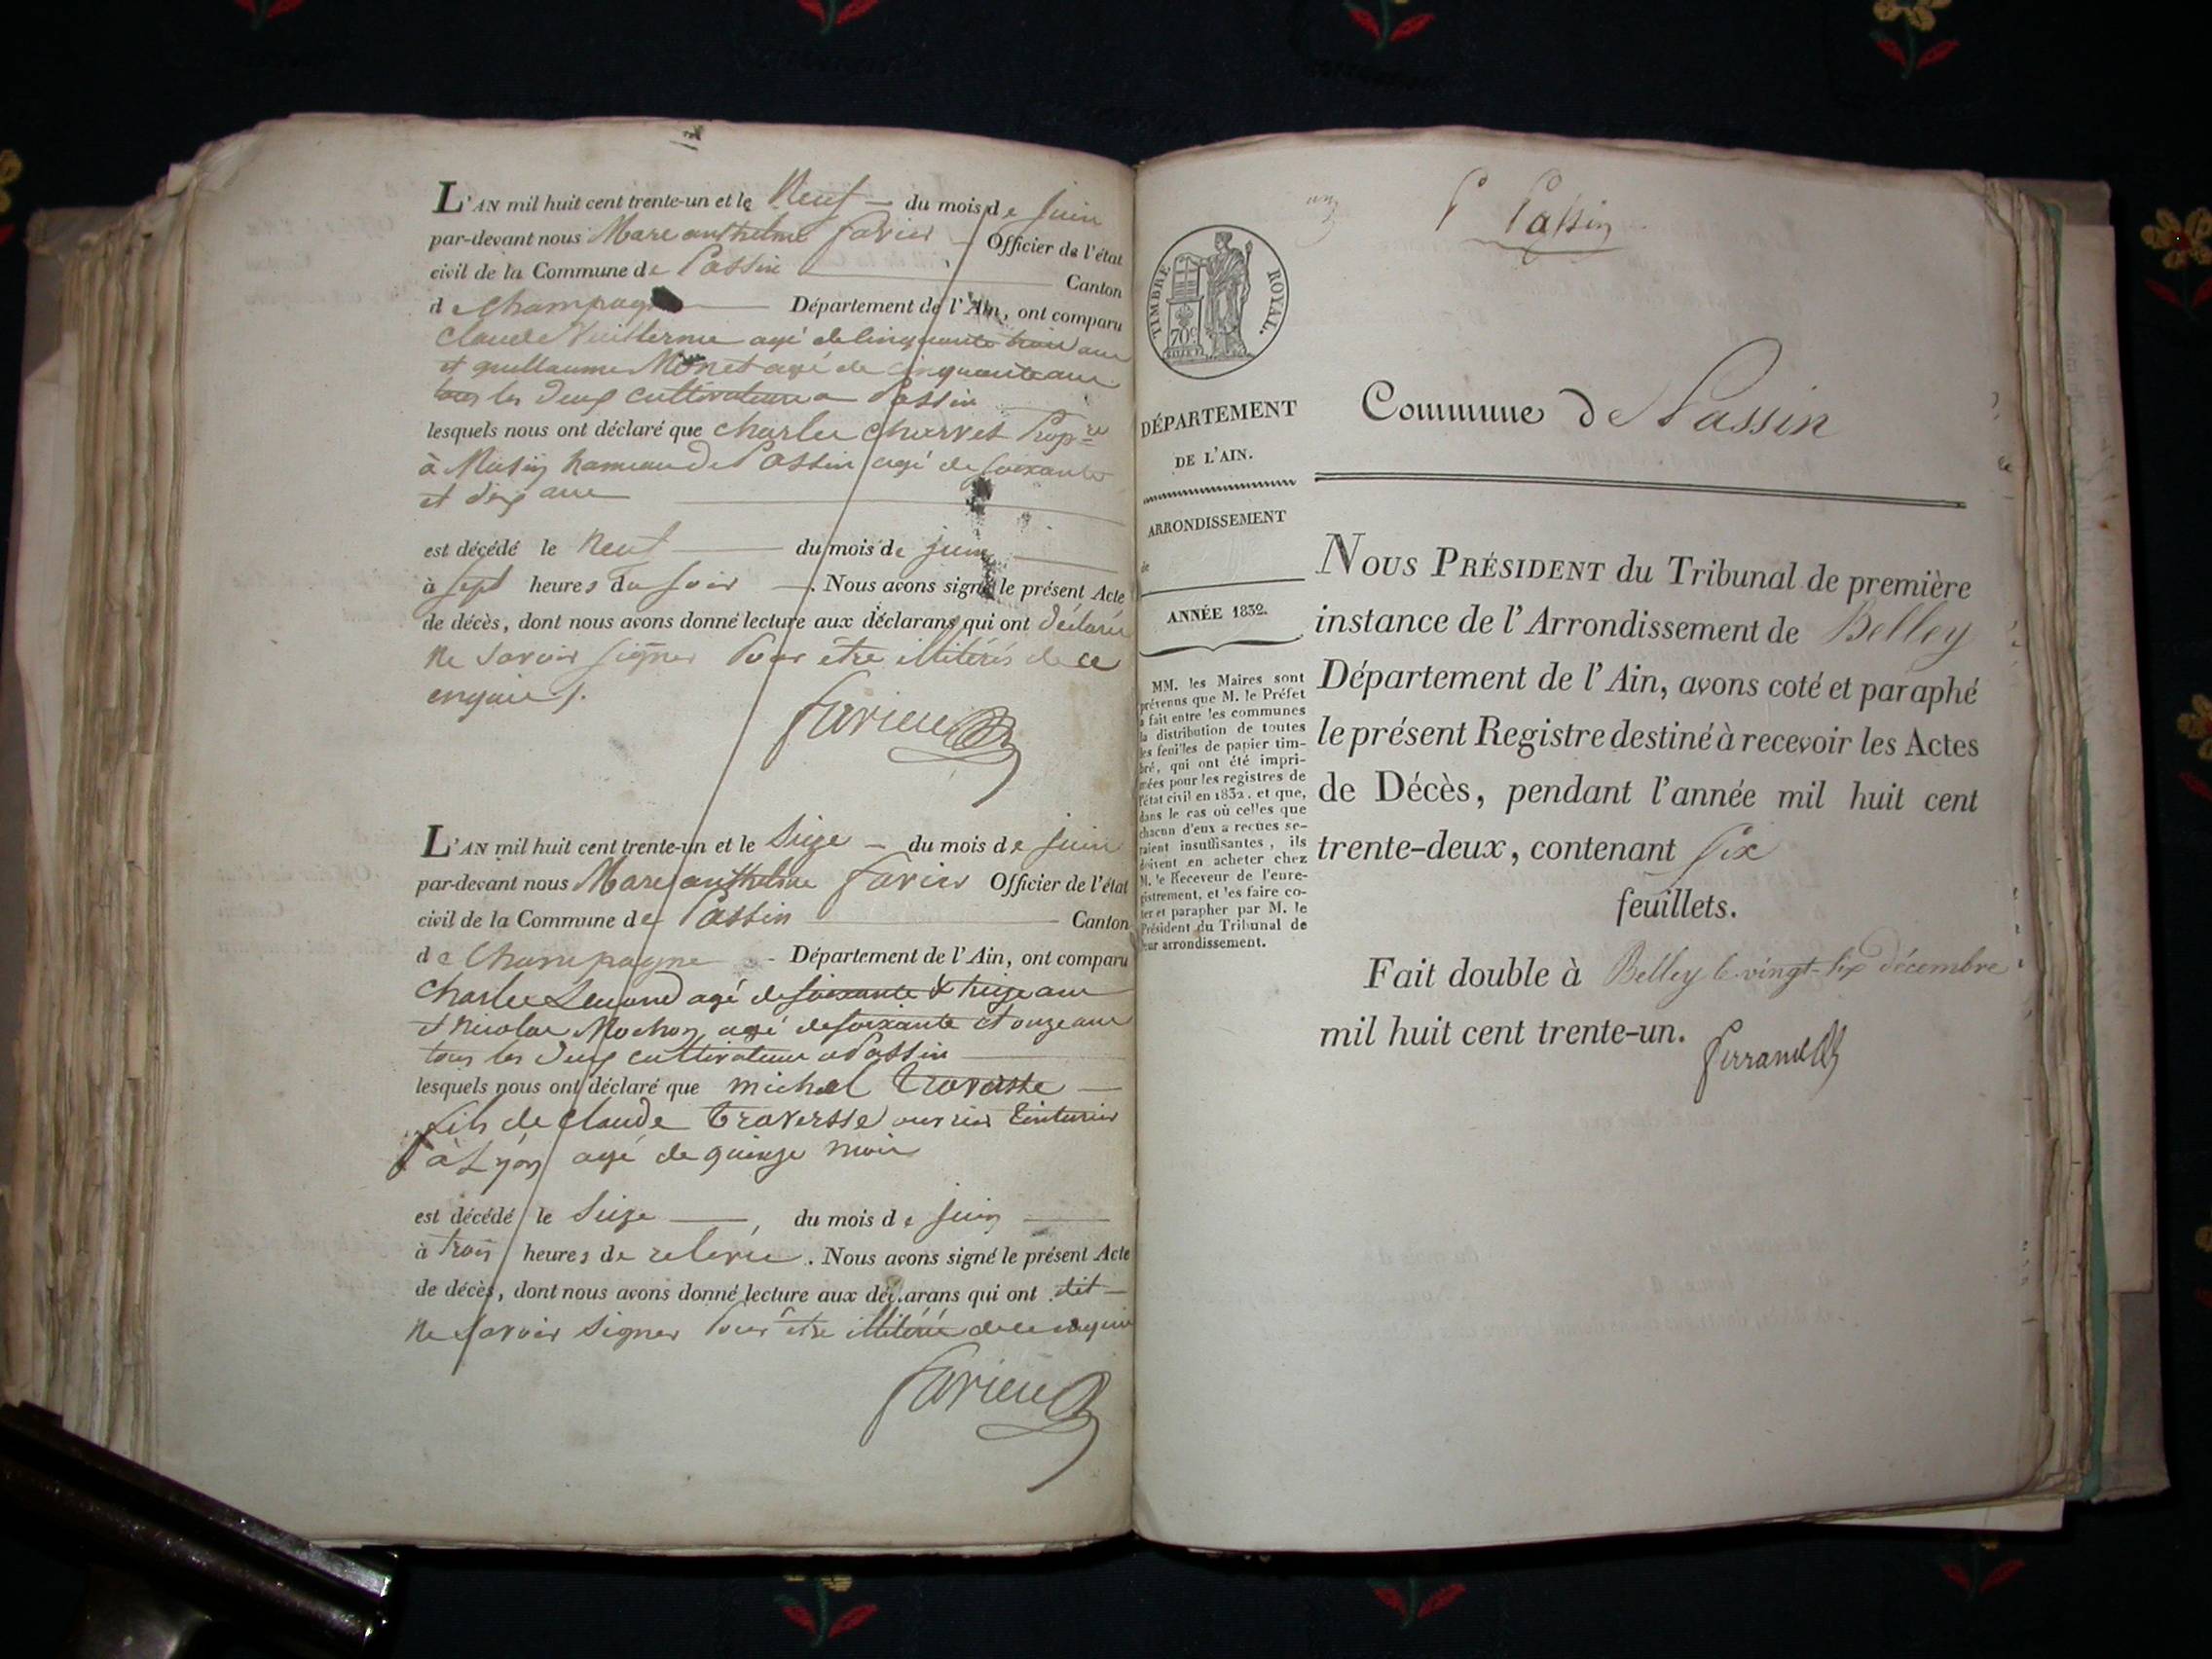 L'AN mil huit cent trente-un et le Neuf du mois de juin
par-devant nous Marc anthelme favier Officier de l'état
civil de la Commune de Passin Canton
de Champagne Département de l'Ain, ont comparu
Claude Vuillerme agé de cinquante trois ans
et guillaume Monet agé de cinquante ans
tous les deux cultivateurs a Passin
lesquels nous ont déclaré que charles charvet Propre
à Musin hameau de Passin agé de soixante
et dix ans
est décédé le Neuf du mois de juin
à sept heures du soir . Nous avons signé le présent Acte
de décès, dont nous avons donné lecture aux déclarans qui ont déclaré
Ne savoir signer Pour être illitérés de ce
enquis ./.
favier
L'AN mil huit cent trente-un et le Seize du mois de juin
par-devant nous Marc anthelme favier Officier de l'état
civil de la Commune de Passin Canton
de Champagne Département de l'Ain, ont comparu
Charles agé de soixante & treize ans
et Nicolas Mochon agé de soixante et onze ans
tous les deux cultivateurs a Passin
lesquels nous ont déclaré que michel
fils de claude traversse ouvrier tinturier
à Lyon agé de quinze mois
est décédé le Seize , du mois de juin
à trois heures de relevée . Nous avons signé le présent Acte
de décès, dont nous avons donné lecture aux déclarans qui ont dit
Ne savoir signer Pour être illitérés de ce enquis
favier
Passin
TIMBRE ROYAL.
70c
DÉPARTEMENT
DE L'AIN.
ARRONDISSEMENT
de
ANNÉE 1832.
MM. les Maires sont
prévenus que M. le Préfet
a fait entre les communes
la distribution de toutes
les feuilles de papier tim-
bré, qui ont été impri-
mées pour les registres de
l'état civil en 1832, et que,
dans le cas où celles que
chacun d'eux a reçues se-
raient insuffisantes, ils
doivent en acheter chez
M. le Receveur de l'enre-
gistrement, et les faire co-
ter et parapher par M. le
Président du Tribunal de
leur arrondissement.
Commune de Passin
NOUS PRÉSIDENT du Tribunal de première
instance de l'Arrondissement de Belley
Département de l'Ain, avons coté et paraphé
le présent Registre destiné à recevoir les Actes
de Décès, pendant l'année mil huit cent
trente-deux, contenant six
feuillets.
Fait double à Belley le vingt-six décembre
mil huit cent trente-un.